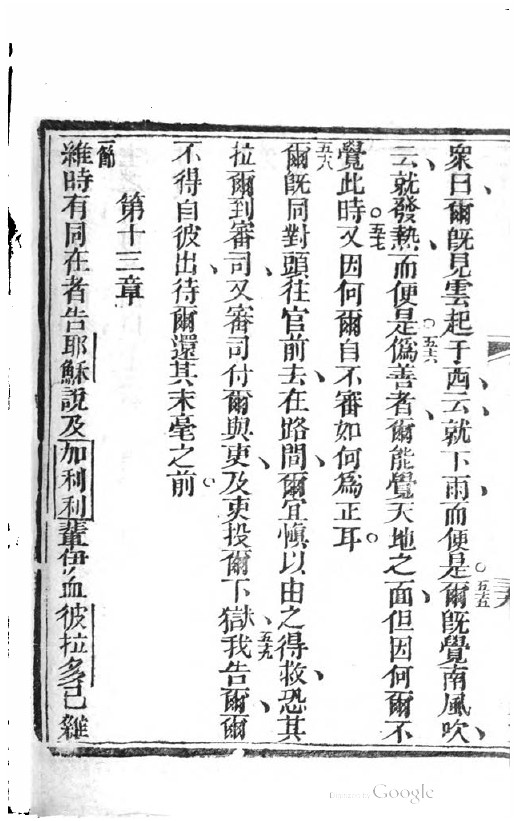 衆曰爾既見雲起于西云就下雨而便是五五爾既覺南風吹
云就發熱而便是五六僞善者爾能覺天地之面但因何爾不
覺此時五七又因何爾自不審如何爲正耳
五八爾既同對頭往官前去在路間爾宜愼以由之得救恐其
拉爾到審司又審司付爾與吏及吏投爾下獄五九我告爾爾
不得自彼出待爾還其末毫之前
第十三章
節
雖時有同在者告耶穌說及加利利輩伊血彼拉多己雜
Digitized by Google